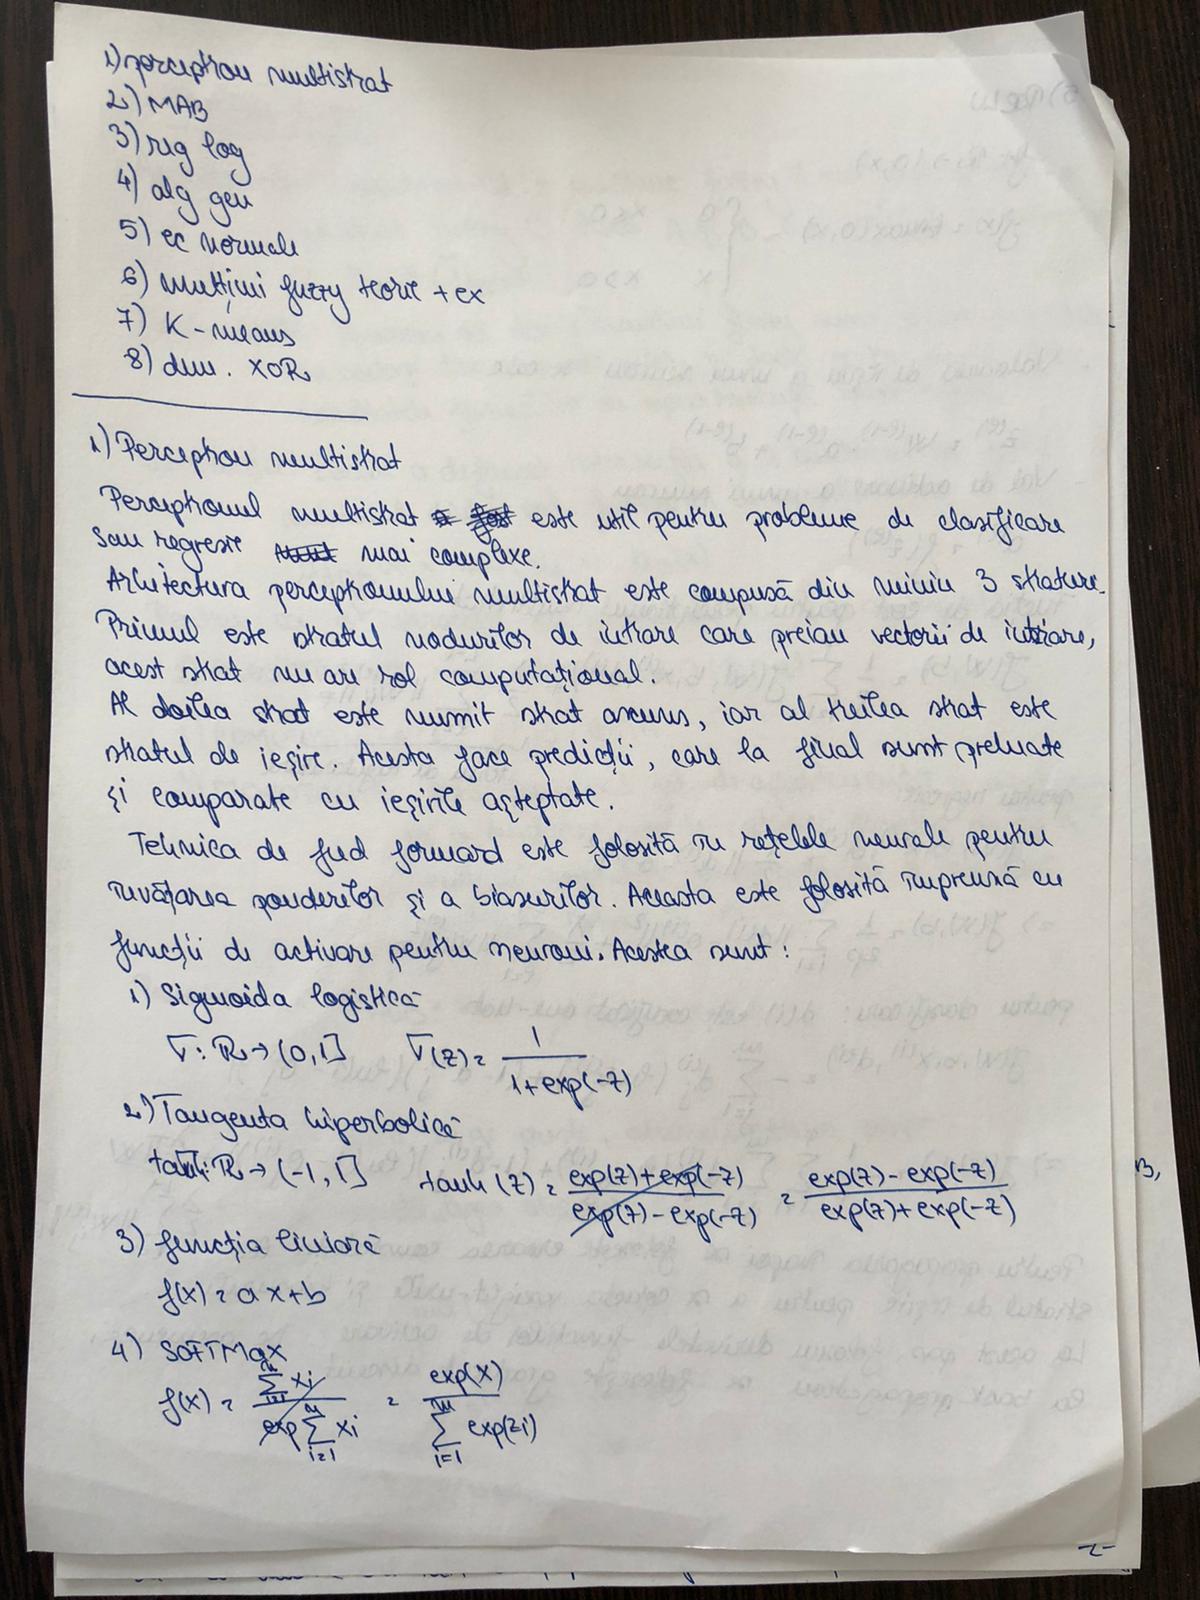 1) perceptron multistrat
2) MAB
3) reg log
4) alg gen
5) ec normale
6) mulțimi fuzzy teorie + ex
7) K-means
8) dem. XOR
1) Perceptron multistrat
Perceptronul multistrat este util pentru probleme de clasificare
sau regresie mai complexe.
Arhitectura perceptronului multistrat este compusă din minim 3 straturi.
Primul este stratul nodurilor de intrare care preiau vectorii de intrare,
acest strat nu are rol computațional.
Al doilea strat este numit strat ascuns, iar al treilea strat este
stratul de ieșire. Acesta face predicții, care la final sunt preluate
și comparate cu ieșirile așteptate.
Tehnica de feed forward este folosită în rețelele neurale pentru
învățarea ponderilor și a biasurilor. Aceasta este folosită împreună cu
funcții de activare pentru neuroni. Acestea sunt:
1) Sigmoida logistică
σ: R → (0,1] σ(z) = 1 / 1+exp(-z)
2) Tangenta hiperbolică
tanh: R → (-1, 1] tanh(z) = exp(z)+exp(-z) / exp(z)-exp(-z) = exp(z)-exp(-z) / exp(z)+exp(-z)
3) funcția liniară
f(x) = ax+b
4) SOFTMax
f(x) = Σ xi / exp Σ i=1 n xi = exp(x) / Σ i=1 n exp(zi)
B,